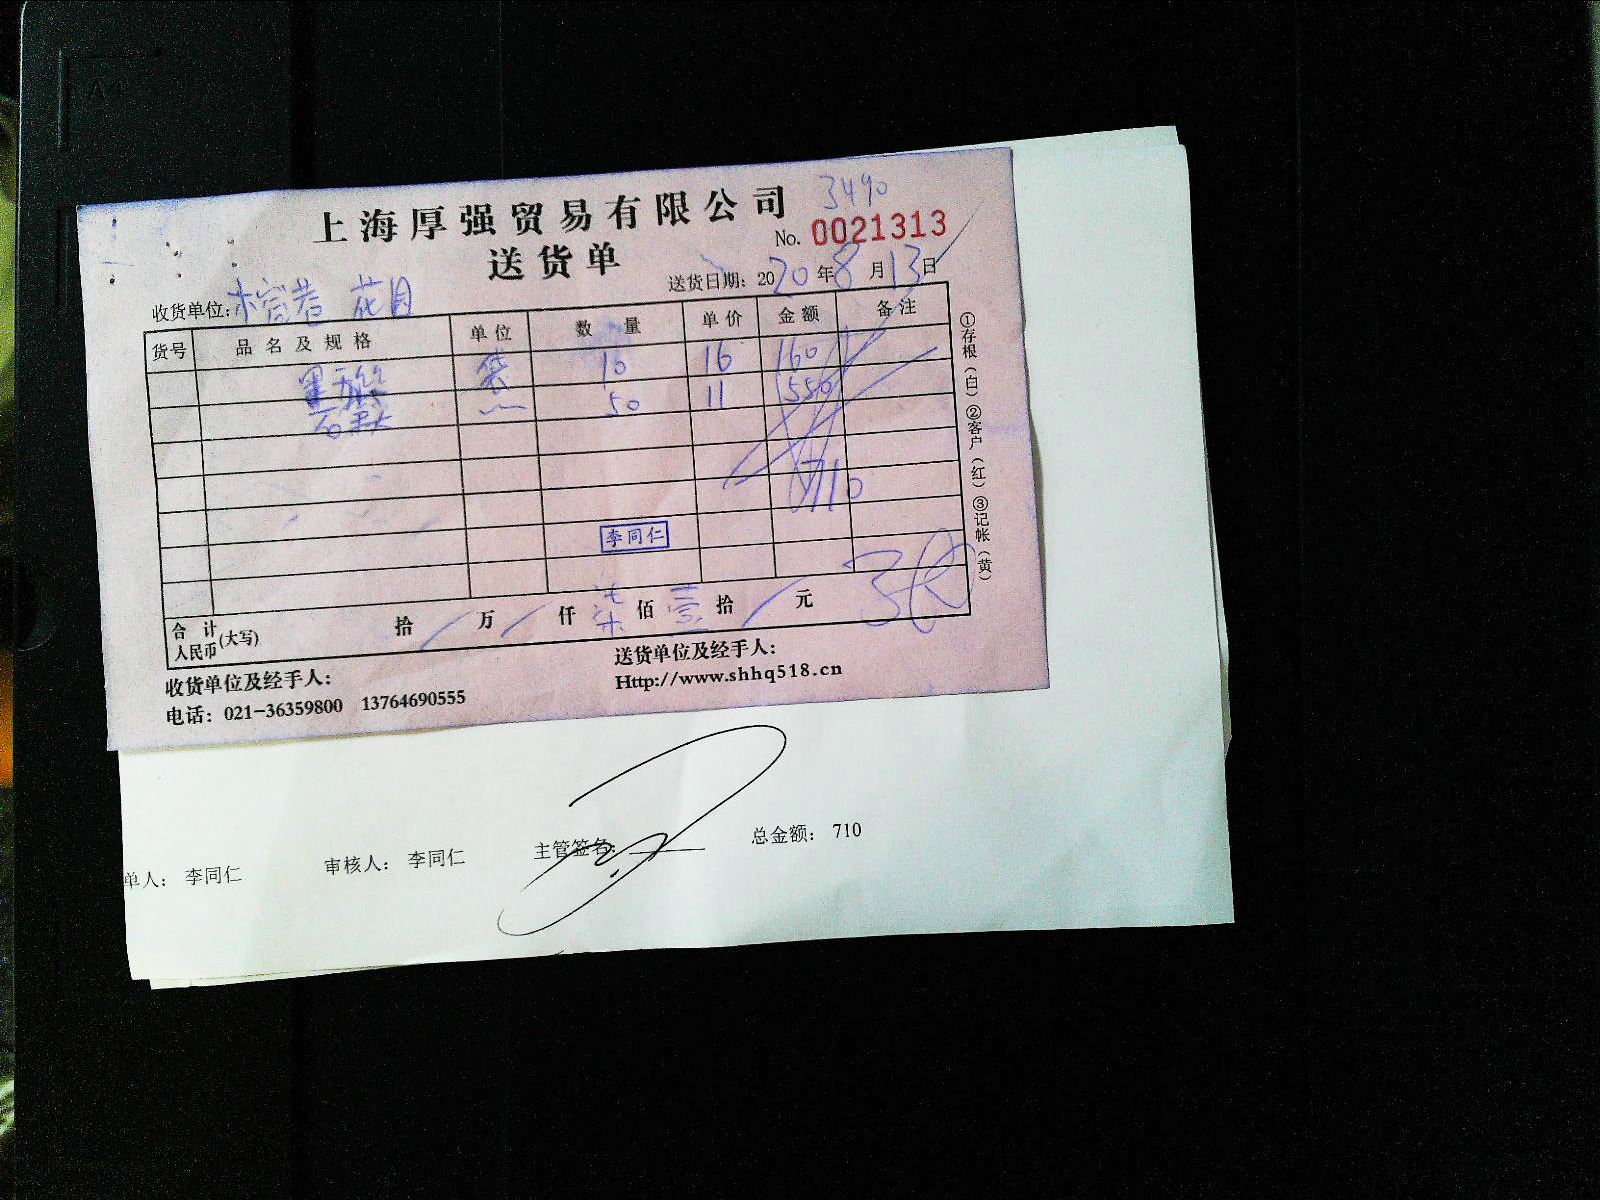 3490
上海厚强贸易有限公司
No. 0021313
送货单
送货日期：2020年8月13日
收货单位： 花月
货号 品名及规格 单位 数量 单价 金额 备注
袋 10 16 160
50 11 550
710
李同仁
合计人民币(大写) 拾 万 仟 柒 佰 壹 拾 元
收货单位及经手人：
送货单位及经手人：
电话：021-36359800 13764690555
Http://www.shhq518.cn
①存根（白）②客户（红）③记帐（黄）
单人： 李同仁 审核人： 李同仁 主管签名： 总金额： 710